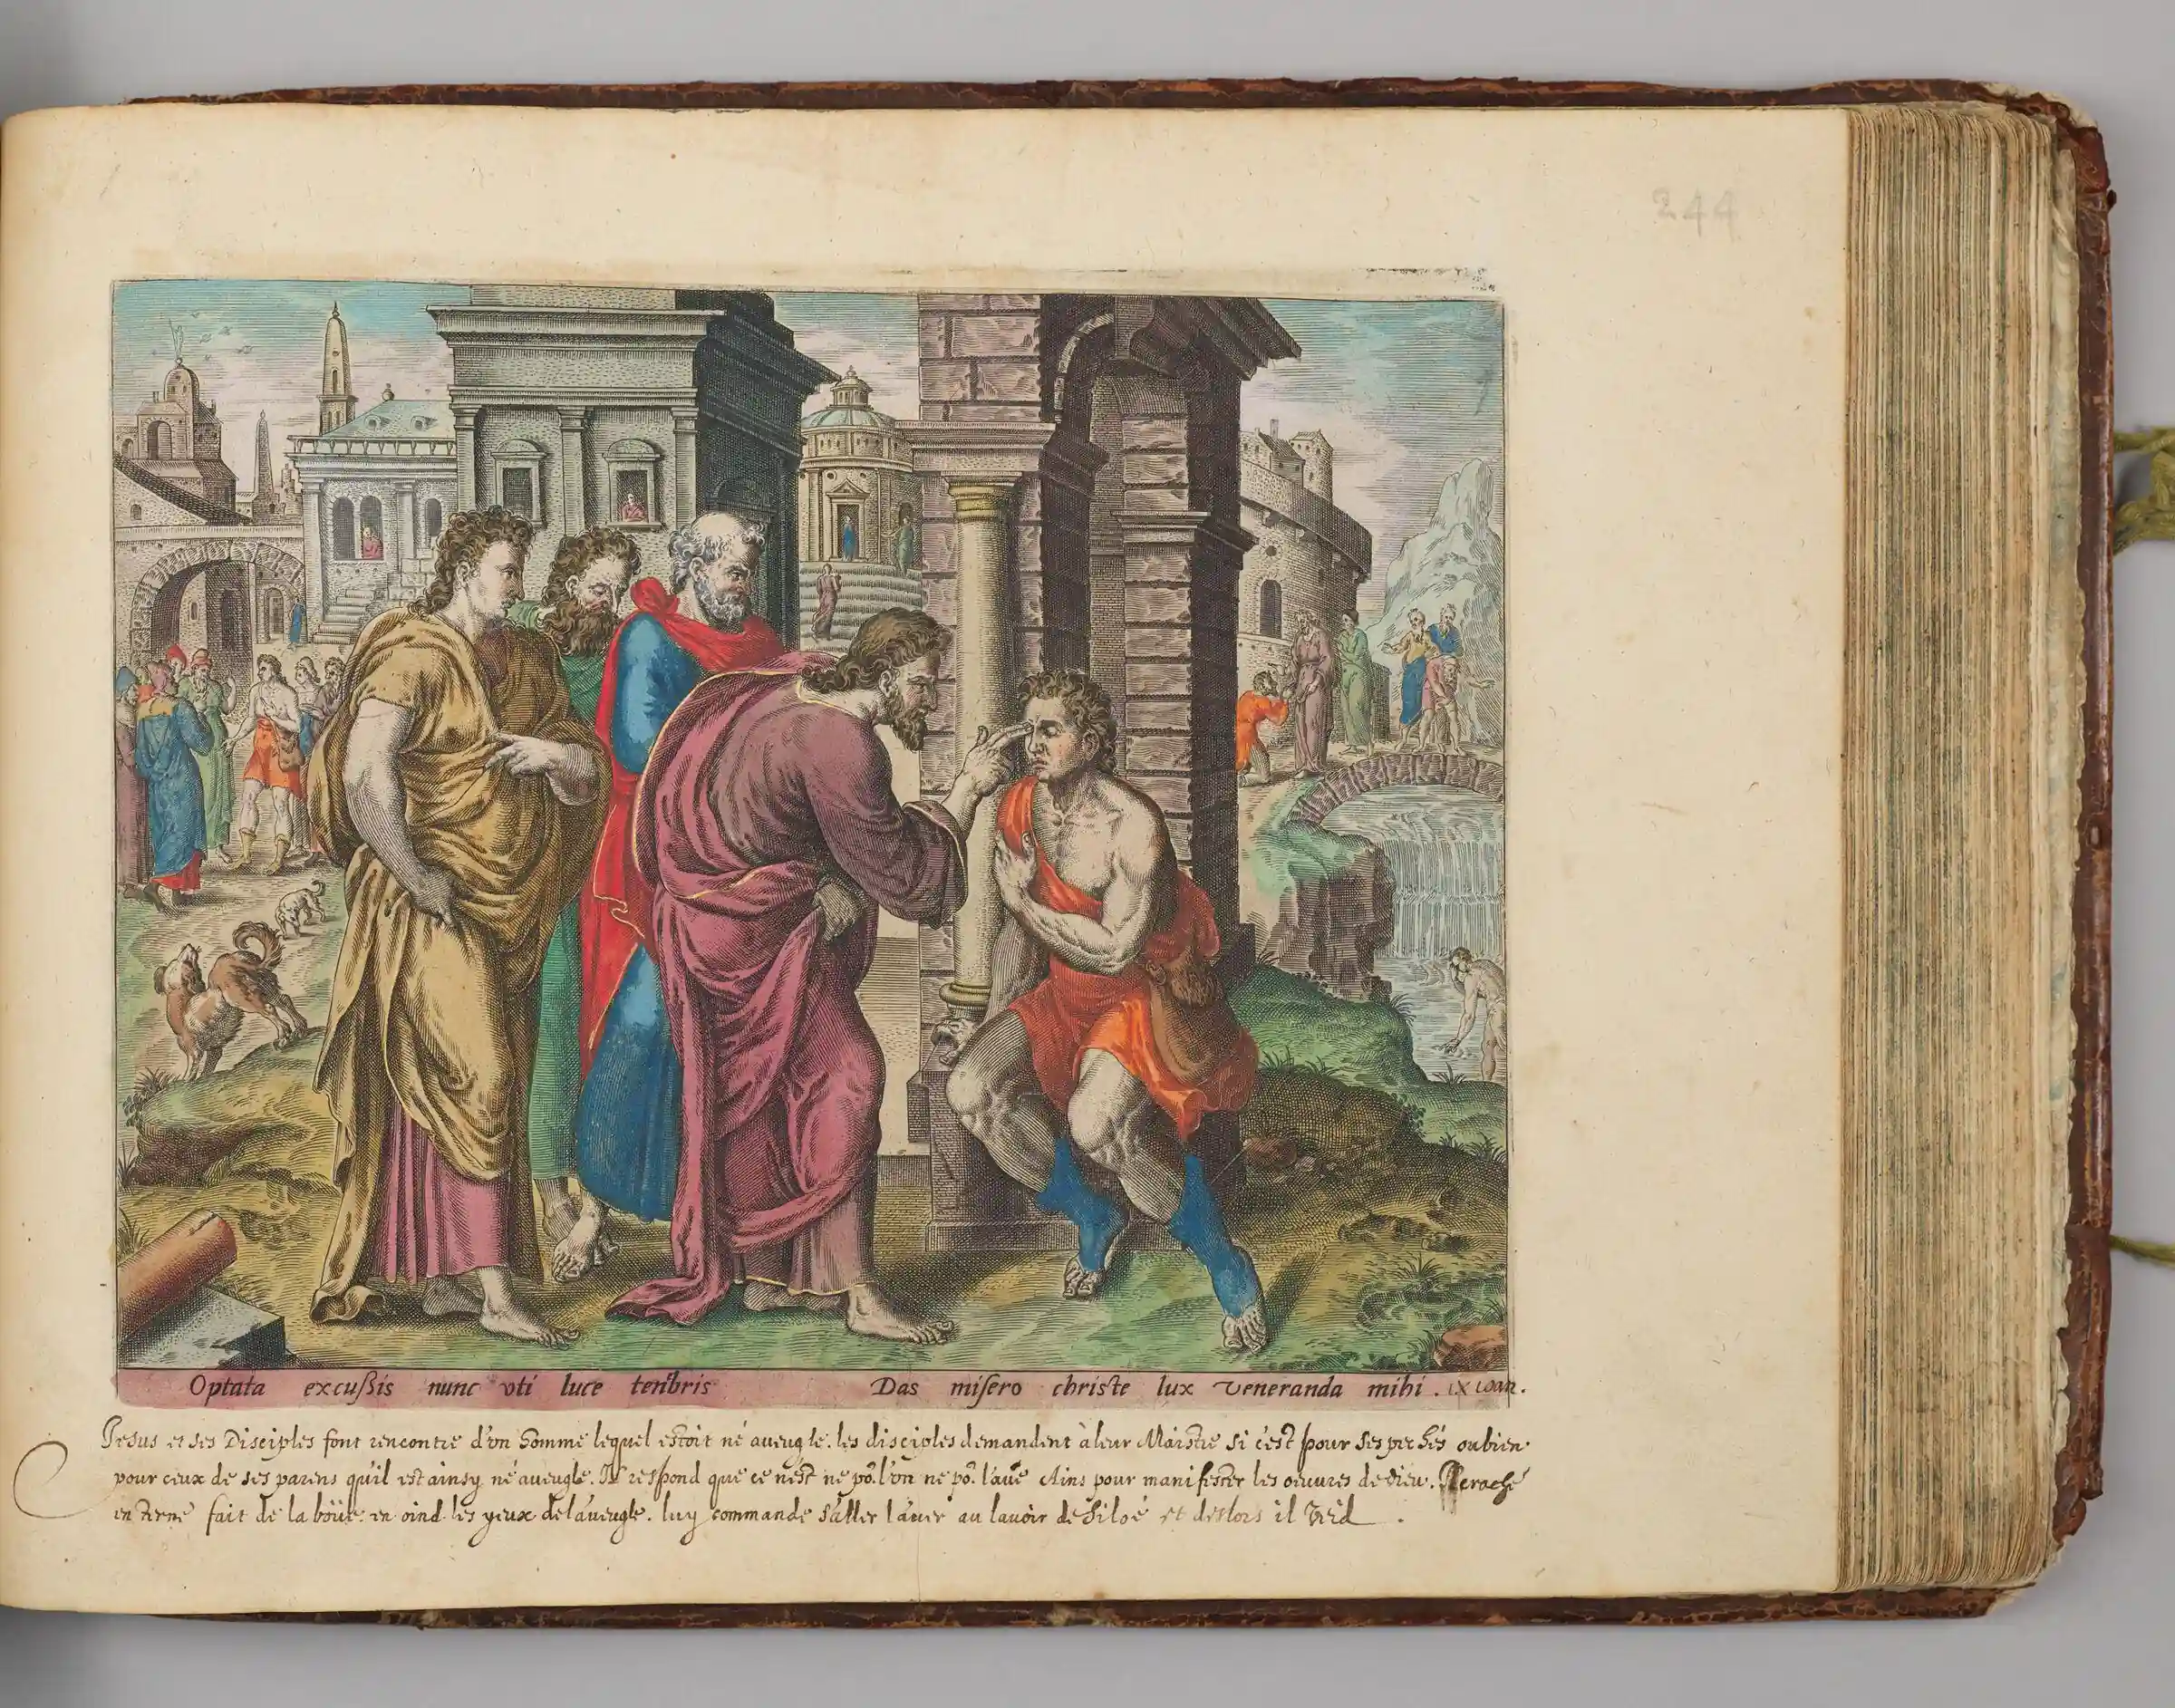 244
Optata excußis nunc vti luce tenbris Das misero christe lux veneranda mihi . IX Ioan.
Iesus et ses Disciples font rencontre d'vn homme lequel estoit né aueugle. les disciples demandent à leur Maistre si c'est pour ses pechés oubien
pour ceux de ses parens qu'il est ainsy né aueugle. Il respond que ce n'est ne po. l'vn ne po. l'aue Ains pour manifester les oeuures de dieu.
en terre fait de la boüe en oind les yeux de l'aueugle. luy commande s'aller lauer au lauoir de Siloé et deslors il veid .